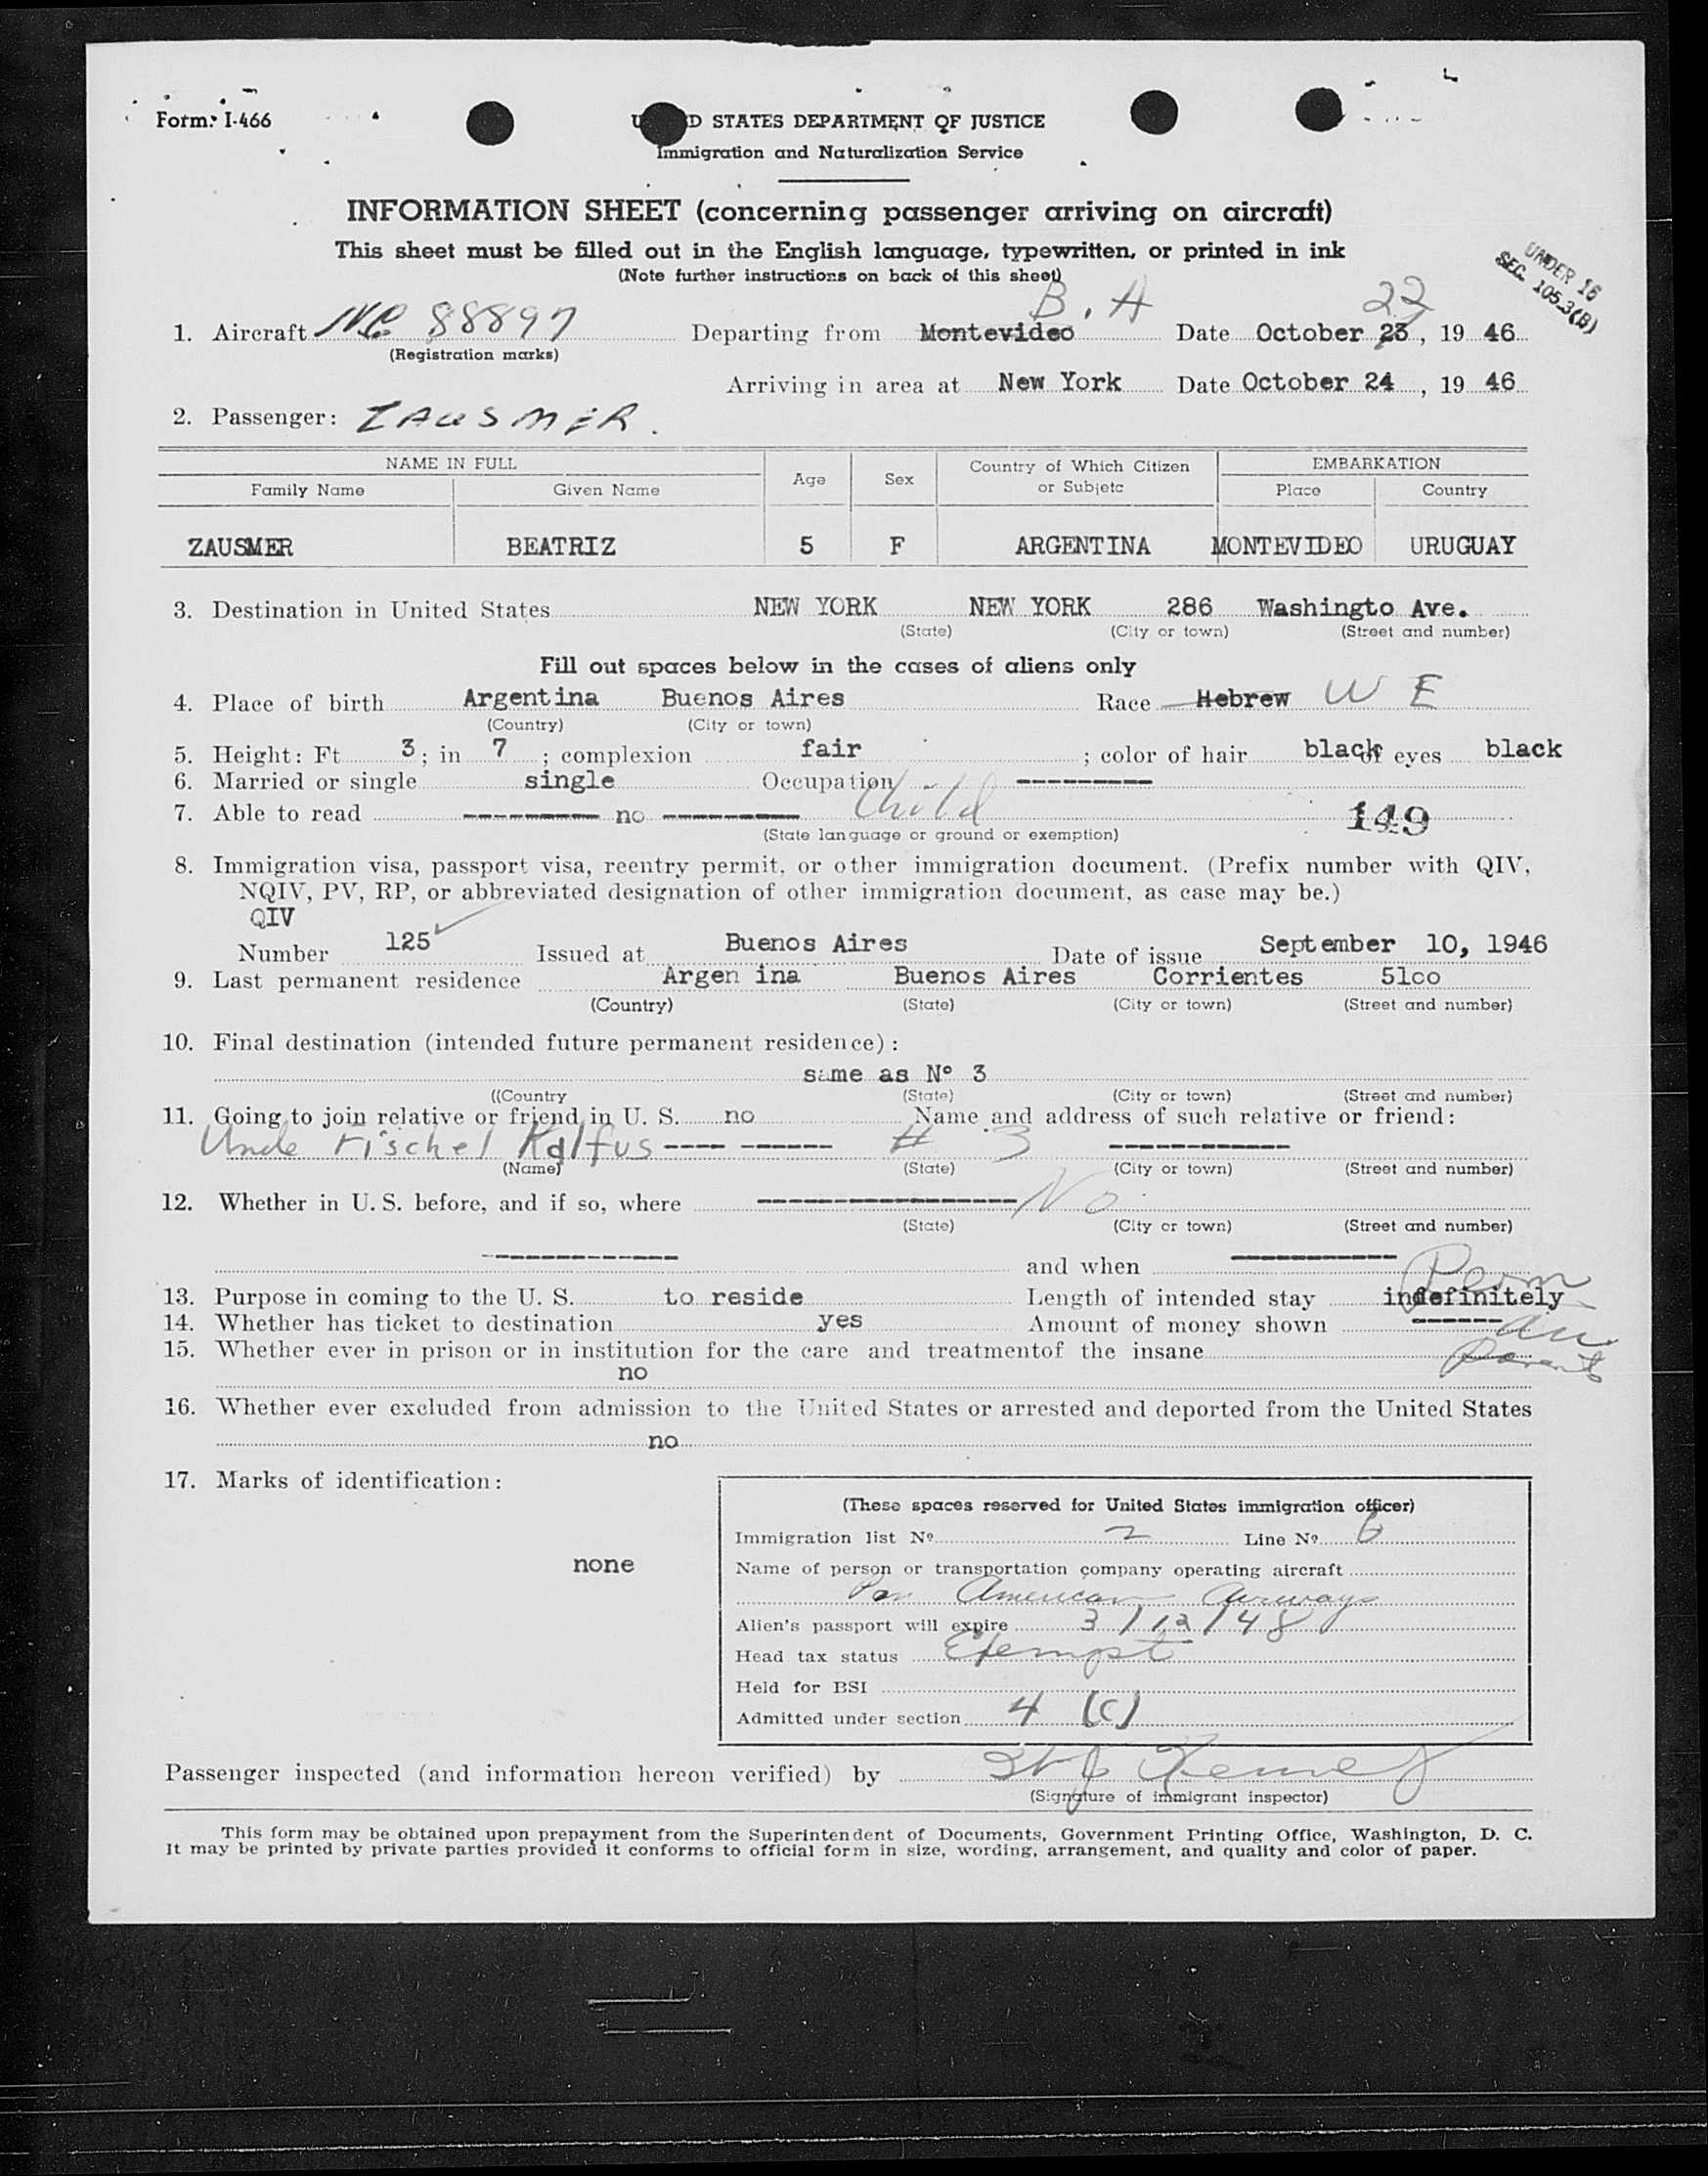 Form: I-466
U D STATES DEPARTMENT OF JUSTICE
Immigration and Naturalization Service
INFORMATION SHEET (concerning passenger arriving on aircraft)
This sheet must be filled out in the English language, typewritten, or printed in ink
(Note further instructions on back of this sheet)
UNDER 16
SEC. 105.3(B)
B. A 22
1. Aircraft NC 88897 Departing from Montevideo Date October 23, 19 46
(Registration marks)
Arriving in area at New York Date October 24, 19 46
2. Passenger: ZAUSMER.
NAME IN FULL Age Sex Country of Which Citizen or Subjetc EMBARKATION
Family Name Given Name Place Country
ZAUSMER BEATRIZ 5 F ARGENTINA MONTEVIDEO URUGUAY
3. Destination in United States NEW YORK NEW YORK 286 Washingto Ave.
(State) (City or town) (Street and number)
Fill out spaces below in the cases of aliens only
4. Place of birth Argentina Buenos Aires Race Hebrew W E
(Country) (City or town)
5. Height: Ft 3; in 7; complexion fair; color of hair black of eyes black
6. Married or single single Occupation ---------
Child
7. Able to read --------- no --------- 149
(State language or ground or exemption)
8. Immigration visa, passport visa, reentry permit, or other immigration document. (Prefix number with QIV,
NQIV, PV, RP, or abbreviated designation of other immigration document, as case may be.)
QIV
Number 125 Issued at Buenos Aires Date of issue September 10, 1946
9. Last permanent residence Argen ina Buenos Aires Corrientes 51co
(Country) (State) (City or town) (Street and number)
10. Final destination (intended future permanent residence):
same as Nº 3
((Country (State) (City or town) (Street and number)
11. Going to join relative or friend in U. S. no Name and address of such relative or friend:
Uncle Fischel Kalfus ---- ------ # 3 ------------
(Name) (State) (City or town) (Street and number)
12. Whether in U. S. before, and if so, where ----------------- No
(State) (City or town) (Street and number)
------------- and when -----------
Perm
13. Purpose in coming to the U. S. to reside Length of intended stay indefinitely
14. Whether has ticket to destination yes Amount of money shown ------
15. Whether ever in prison or in institution for the care and treatmentof the insane
Parents
no
16. Whether ever excluded from admission to the United States or arrested and deported from the United States
no
17. Marks of identification:
none
(These spaces reserved for United States immigration officer)
Immigration list Nº 2 Line Nº 6
Name of person or transportation company operating aircraft
Pan American Airways
Alien's passport will expire 3/12/48
Head tax status Exempt
Held for BSI
Admitted under section 4 (C)
Passenger inspected (and information hereon verified) by
(Signature of immigrant inspector)
This form may be obtained upon prepayment from the Superintendent of Documents, Government Printing Office, Washington, D. C.
It may be printed by private parties provided it conforms to official form in size, wording, arrangement, and quality and color of paper.